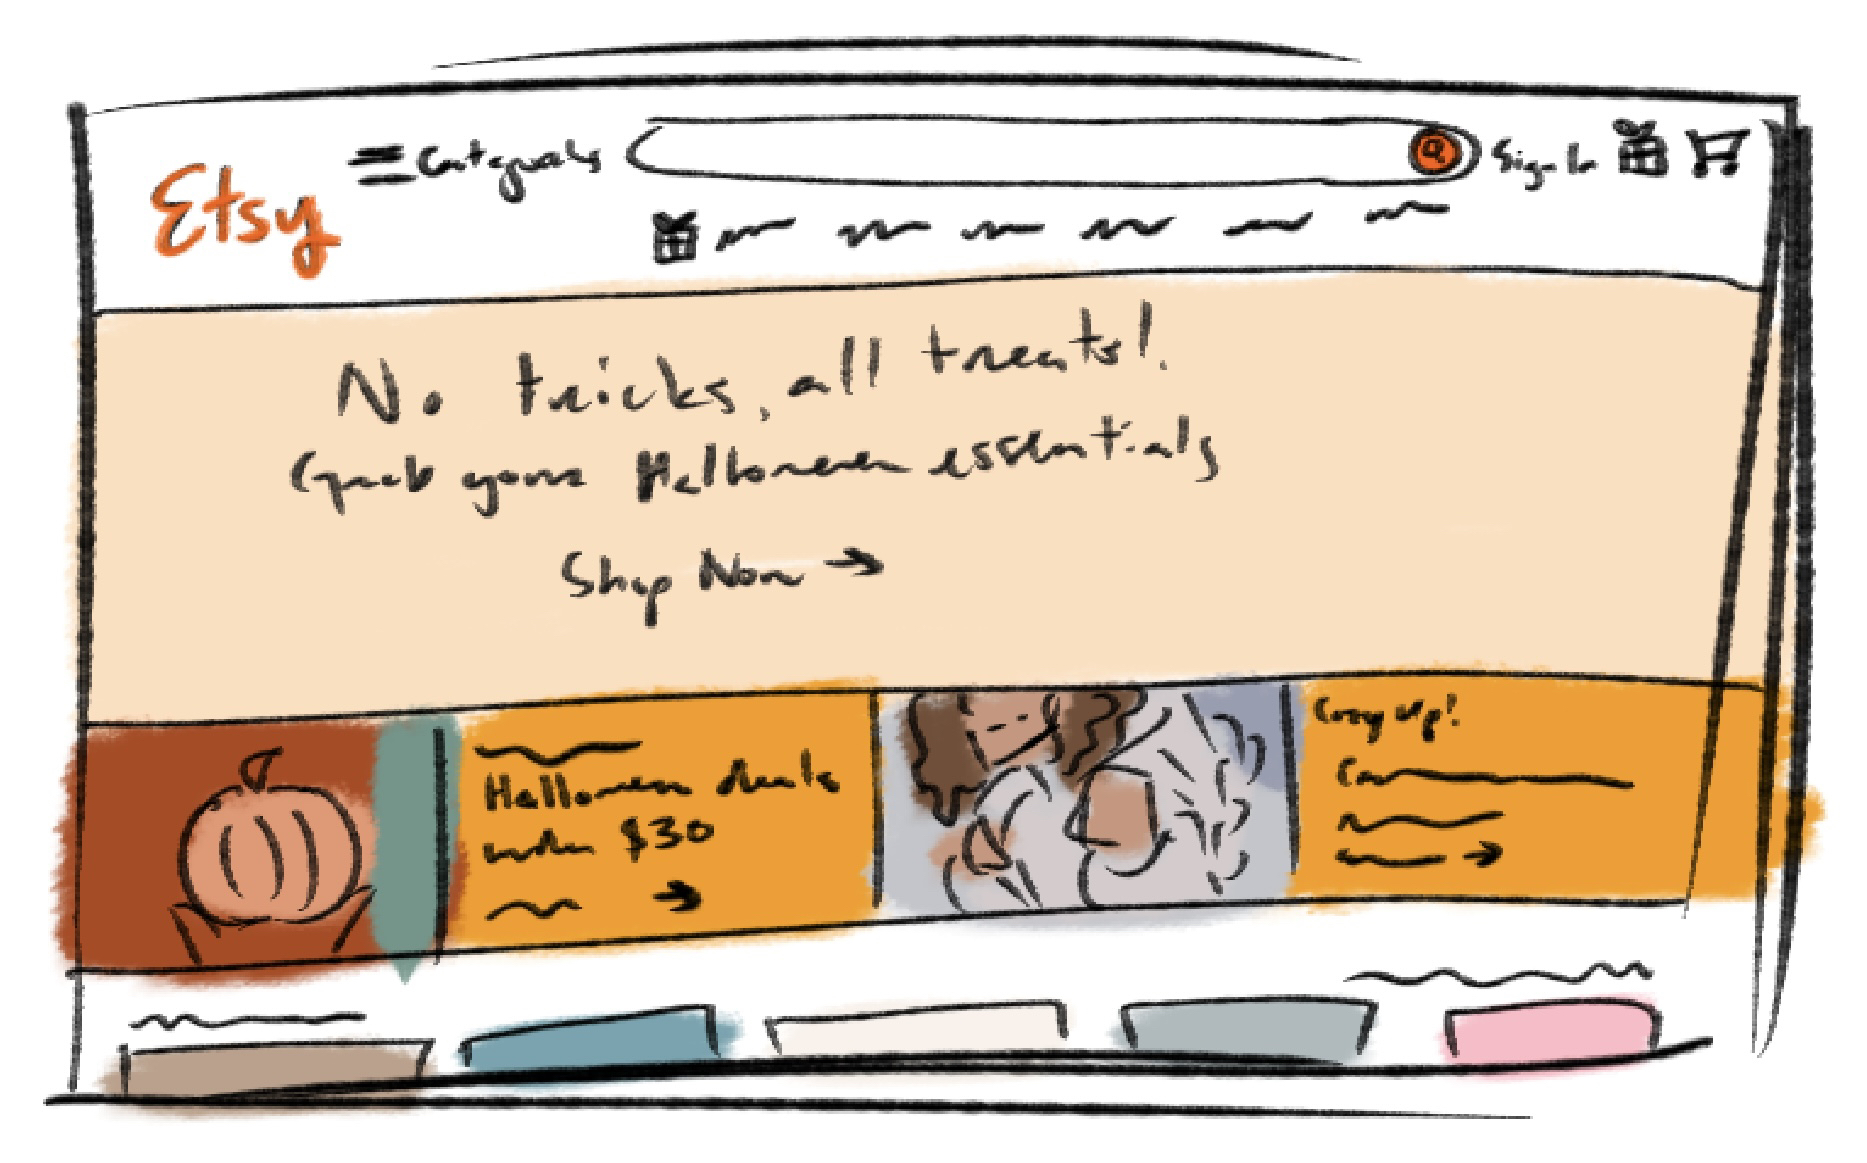 Etsy
Categories
Sign In
No tricks, all treats!
Grab your Halloween essentials
Shop Now →
Halloween deals
under $30
→
Cozy Up!
→